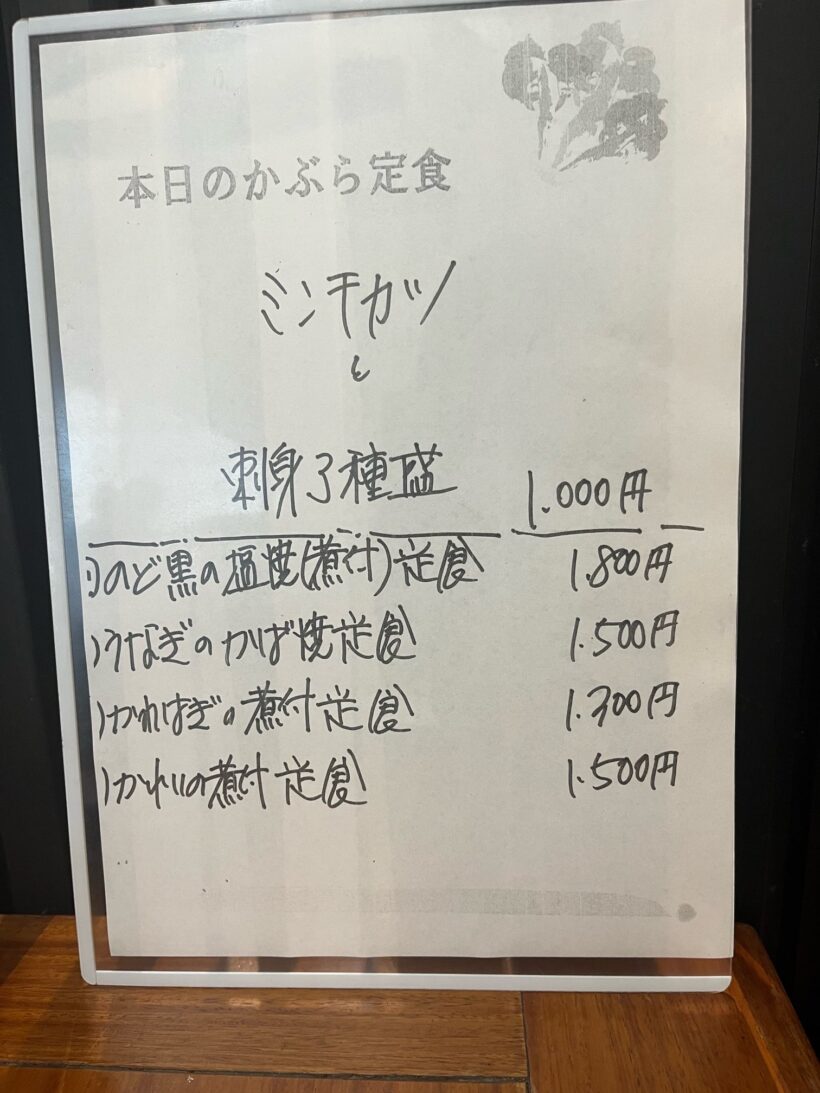 本日のかぶら定食
ミンチカツ
と
刺身3種盛 1.000円
)のど黒の塩焼(煮付)定食 1.800円
)うなぎのかば焼定食 1.500円
)かわはぎの煮付定食 1.300円
)かれいの煮付定食 1.500円